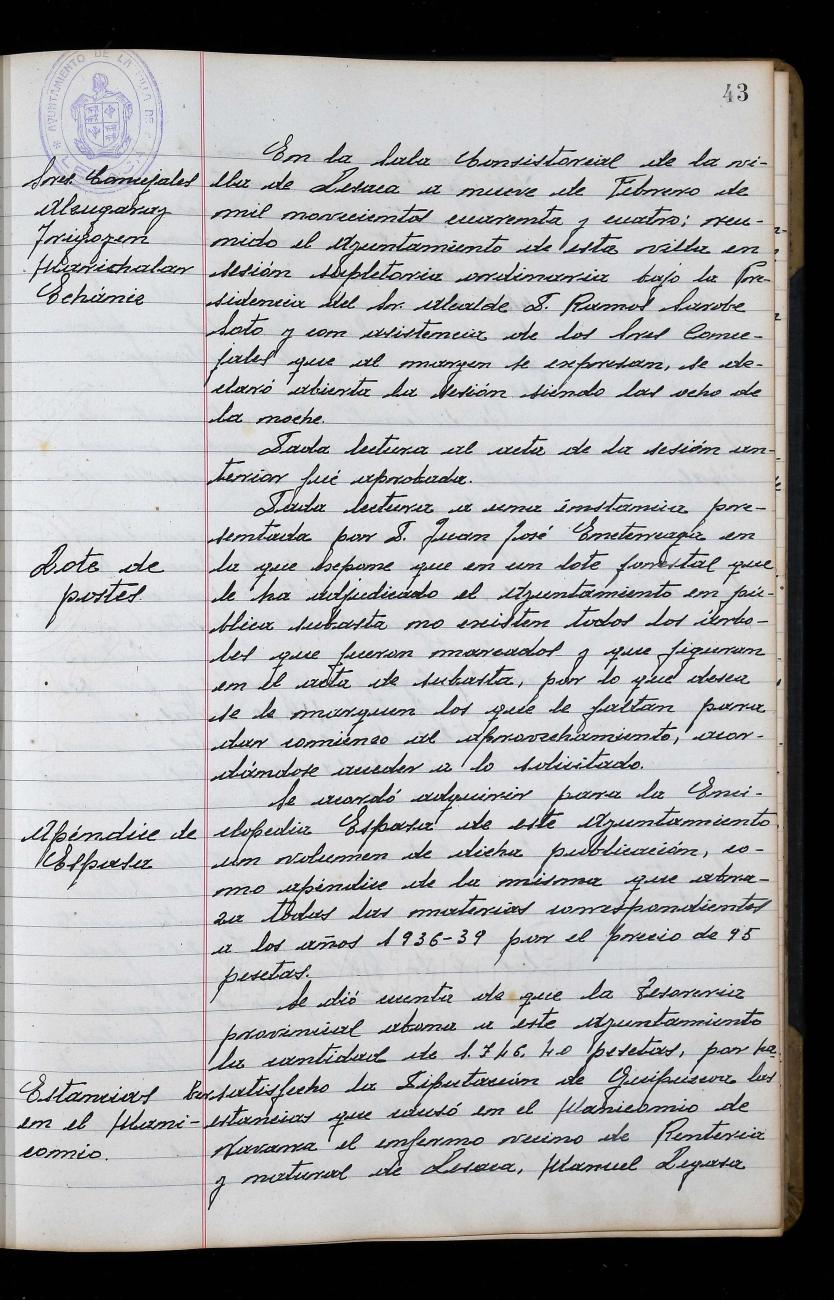 43
AYUNTAMIENTO DE LA VILLA DE
Sres. Concejales
Alzugaray
Irigoyen
Marichalar
Echániz
En la Sala Consistorial de la vi-
lla de Lesaca a nueve de Febrero de
mil novecientos cuarenta y cuatro; reu-
nido el Ayuntamiento de esta villa en
sesión supletoria ordinaria bajo la Pre-
sidencia del Sr. Alcalde D. Ramos Sarobe
Soto y con asistencia de los Sres Conce-
jales que al margen se expresan, se de-
claró abierta la sesión siendo las ocho de
la noche.
Dada lectura al acta de la sesión an-
terior fué aprobada.
Lote de
postes.
Dada lectura a una instancia pre-
sentada por D. Juan José en
la que expone que en un lote forestal que
le ha adjudicado el Ayuntamiento en pú-
blica subasta no existen todos los árbo-
les que fueron marcados y que figuran
en el acta de subasta, por lo que desea
se le marquen los que le faltan para
dar comienzo al aprovechamiento, acor-
dándose acceder a lo solicitado.
Apéndice de
Espasa
Se acordó adquirir para la Enci-
clopedia Espasa de este Ayuntamiento
un volumen de dicha publicación, co-
mo apéndice de la misma que abra-
za todas las materias correspondientes
a los años 1936-39 por el precio de 95
pesetas.
Estancias
en el Mani-
comio.
Se dió cuenta de que la Tesorería
provincial abona a este Ayuntamiento
la cantidad de 1.746,40 pesetas, por ha-
ber satisfecho la Diputación de Guipúzcoa las
estancias que causó en el Manicomio de
Navarra el enfermo vecino de Rentería
y natural de Lesaca, Manuel Legasa